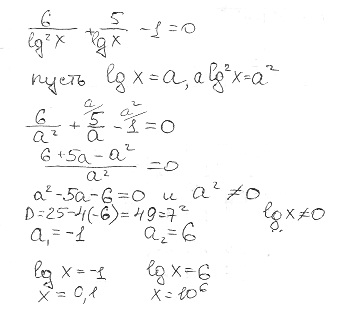 6/lg²x + 5/lgx - 1 = 0
пусть lg x = a, а lg²x = a²
6/a² + 5/a (a/ - 1 (a²/ = 0
(6 + 5a - a²)/a² = 0
a² - 5a - 6 = 0 и a² ≠ 0
D = 25 - 4(-6) = 49 = 7² lg x ≠ 0
a₁ = -1 a₂ = 6
log x = -1 lg x = 6
x = 0,1 x = 10⁶